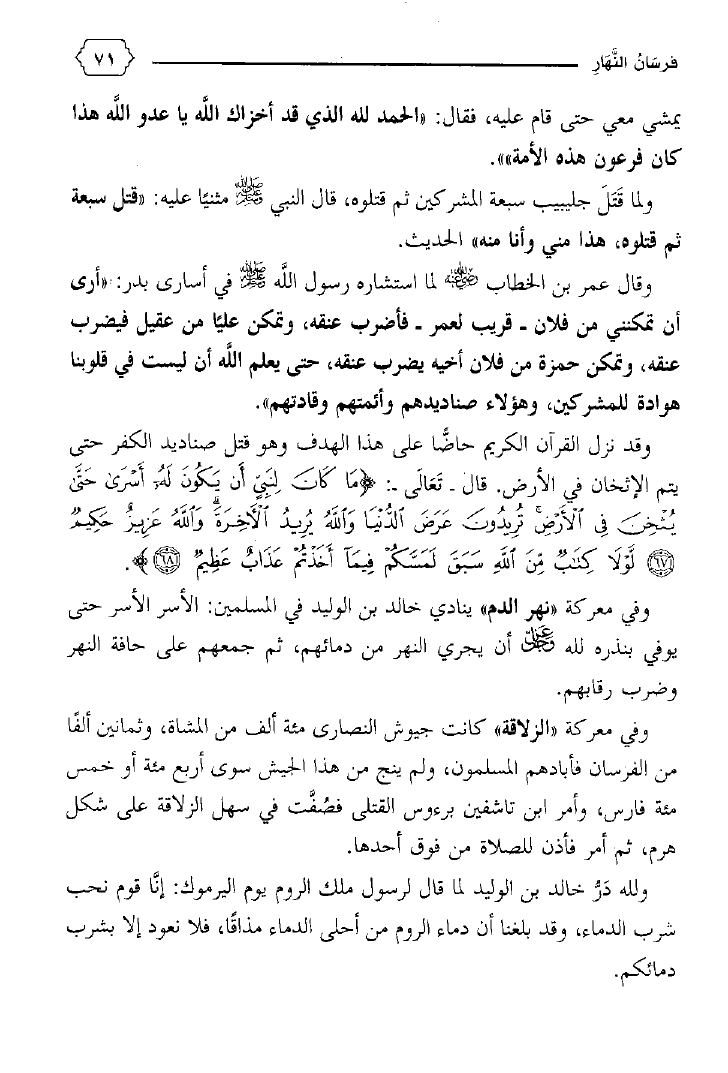 فرسَانُ النَّهَارِ ٧١
يمشي معي حتى قام عليه، فقال: «الحمد لله الذي قد أخزاك اللَّه يا عدو اللَّه هذا
كان فرعون هذه الأمة»».
ولما قَتَلَ جليبيب سبعة المشركين ثم قتلوه، قال النبي ﷺ مثنيًا عليه: «قتل سبعة
ثم قتلوه، هذا مني وأنا منه» الحديث.
وقال عمر بن الخطاب رضي الله عنه لما استشاره رسول اللَّه ﷺ في أسارى بدر: «أرى
أن تمكنني من فلان ـ قريب لعمر ـ فأضرب عنقه، وتمكن عليًا من عقيل فيضرب
عنقه، وتمكن حمزة من فلان أخيه يضرب عنقه، حتى يعلم اللَّه أن ليست في قلوبنا
هوادة للمشركين، وهؤلاء صناديدهم وأئمتهم وقادتهم».
وقد نزل القرآن الكريم حاضًّا على هذا الهدف وهو قتل صناديد الكفر حتى
يتم الإثخان في الأرض. قال ـ تَعَالَى ـ: ﴿مَا كَانَ لِنَبِيٍّ أَن يَكُونَ لَهُۥٓ أَسْرَىٰ حَتَّىٰ
يُثْخِنَ فِي ٱلْأَرْضِۚ تُرِيدُونَ عَرَضَ ٱلدُّنْيَا وَٱللَّهُ يُرِيدُ ٱلْأَخِرَةَۗ وَٱللَّهُ عَزِيزٌ حَكِيمٌ
٦٧ لَّوْلَا كِتَٰبٌ مِّنَ ٱللَّهِ سَبَقَ لَمَسَّكُمْ فِيمَآ أَخَذْتُمْ عَذَابٌ عَظِيمٌ ٦٨﴾.
وفي معركة «نهر الدم» ينادي خالد بن الوليد في المسلمين: الأسر الأسر حتى
يوفي بنذره لله عز وجل أن يجري النهر من دمائهم، ثم جمعهم على حافة النهر
وضرب رقابهم.
وفي معركة «الزلاقة» كانت جيوش النصارى مئة ألف من المشاة، وثمانين ألفًا
من الفرسان فأبادهم المسلمون، ولم ينج من هذا الجيش سوى أربع مئة أو خمس
مئة فارس، وأمر ابن تاشفين برءوس القتلى فصُفَّت في سهل الزلاقة على شكل
هرم، ثم أمر فأذن للصلاة من فوق أحدها.
ولله دَرُّ خالد بن الوليد لما قال لرسول ملك الروم يوم اليرموك: إنَّا قوم نحب
شرب الدماء، وقد بلغنا أن دماء الروم من أحلى الدماء مذاقًا، فلا نعود إلا بشرب
دمائكم.